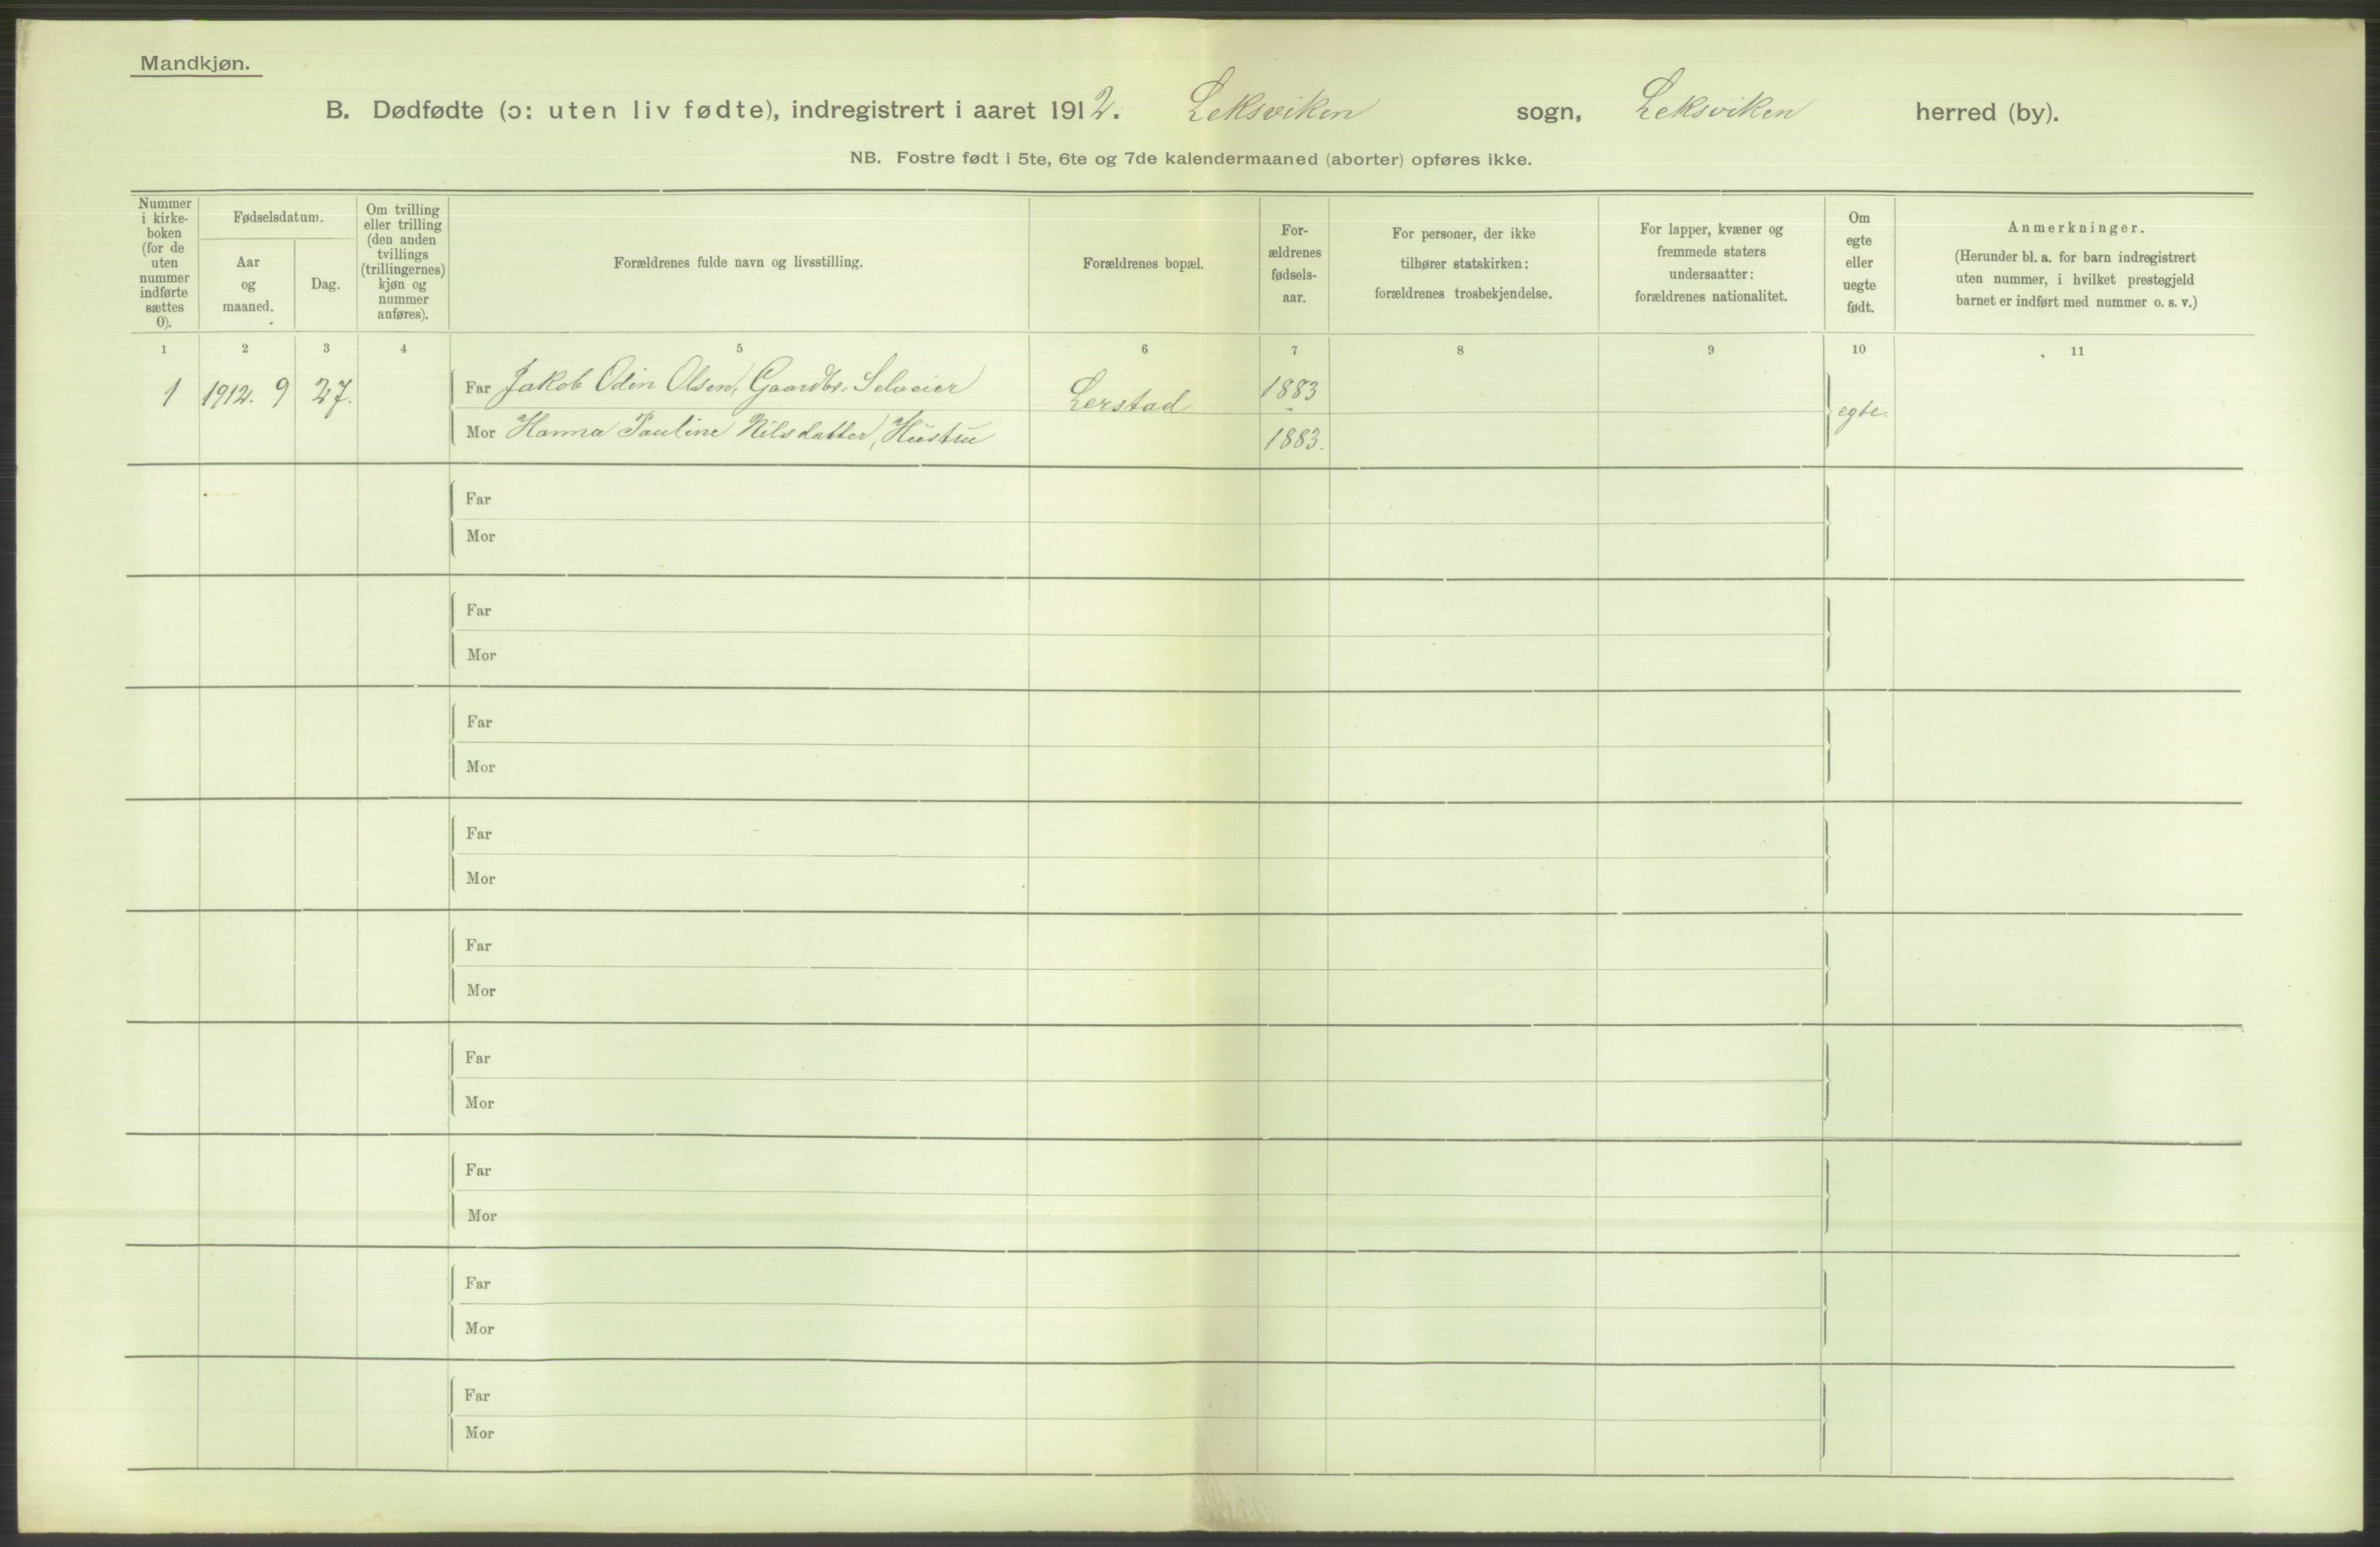 Mandkjøn.
B. Dødfødte (ɔ: uten liv fødte), indregistrert i aaret 1912. Leksviken sogn, Leksviken herred (by).
NB. Fostre født i 5te, 6te og 7de kalendermaaned (aborter) opføres ikke.
Nummer
i kirke-
boken
(for de
uten
nummer
indførte
sættes
0).
Fødselsdatum.
Aar
og
maaned.
Dag.
Om tvilling
eller trilling
(den anden
tvillings
(trillingernes)
kjøn og
nummer
anføres).
Forældrenes fulde navn og livsstilling.
Forældrenes bopæl.
For-
ældrenes
fødsels-
aar.
For personer, der ikke
tilhører statskirken:
forældrenes trosbekjendelse.
For lapper, kvæner og
fremmede staters
undersaatter:
forældrenes nationalitet.
Om
egte
eller
uegte
født.
Anmerkninger.
(Herunder bl. a. for barn indregistrert
uten nummer, i hvilket prestegjeld
barnet er indført med nummer o. s. v.)
1 2 3 4 5 6 7 8 9 10 11
1 1912. 9 27. Far Jakob Odin Olsen, Gaardbr. Selveier Lerstad 1883 egte.
Mor Hanna Pauline Nilsdatter, Hustru 1883.
Far
Mor
Far
Mor
Far
Mor
Far
Mor
Far
Mor
Far
Mor
Far
Mor
Far
Mor
Far
Mor